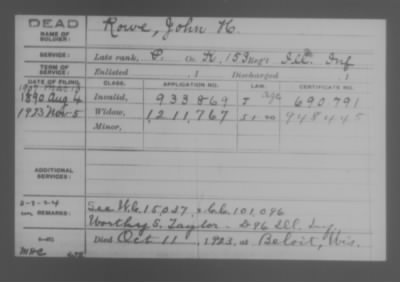 DEAD
NAME OF SOLDIER: Rowe, John K.
SERVICE: Late rank, P. Co. K, 153 Reg't Ill. Inf
TERM OF SERVICE: Enlisted , 1 Discharged , 1
DATE OF FILING. CLASS. APPLICATION NO. LAW. CERTIFICATE NO.
1907
1890 Aug 4 Invalid, 933869 Age 690791
1923 Nov 5 Widow, 1,211,767 948445
Minor,
ADDITIONAL SERVICES:
REMARKS: See W.C. 15,027, & C.C. 101,096
Worthy S. Taylor - D 96 Ill. Inf.
Died Oct 11, 1923, at Beloit, Wis.